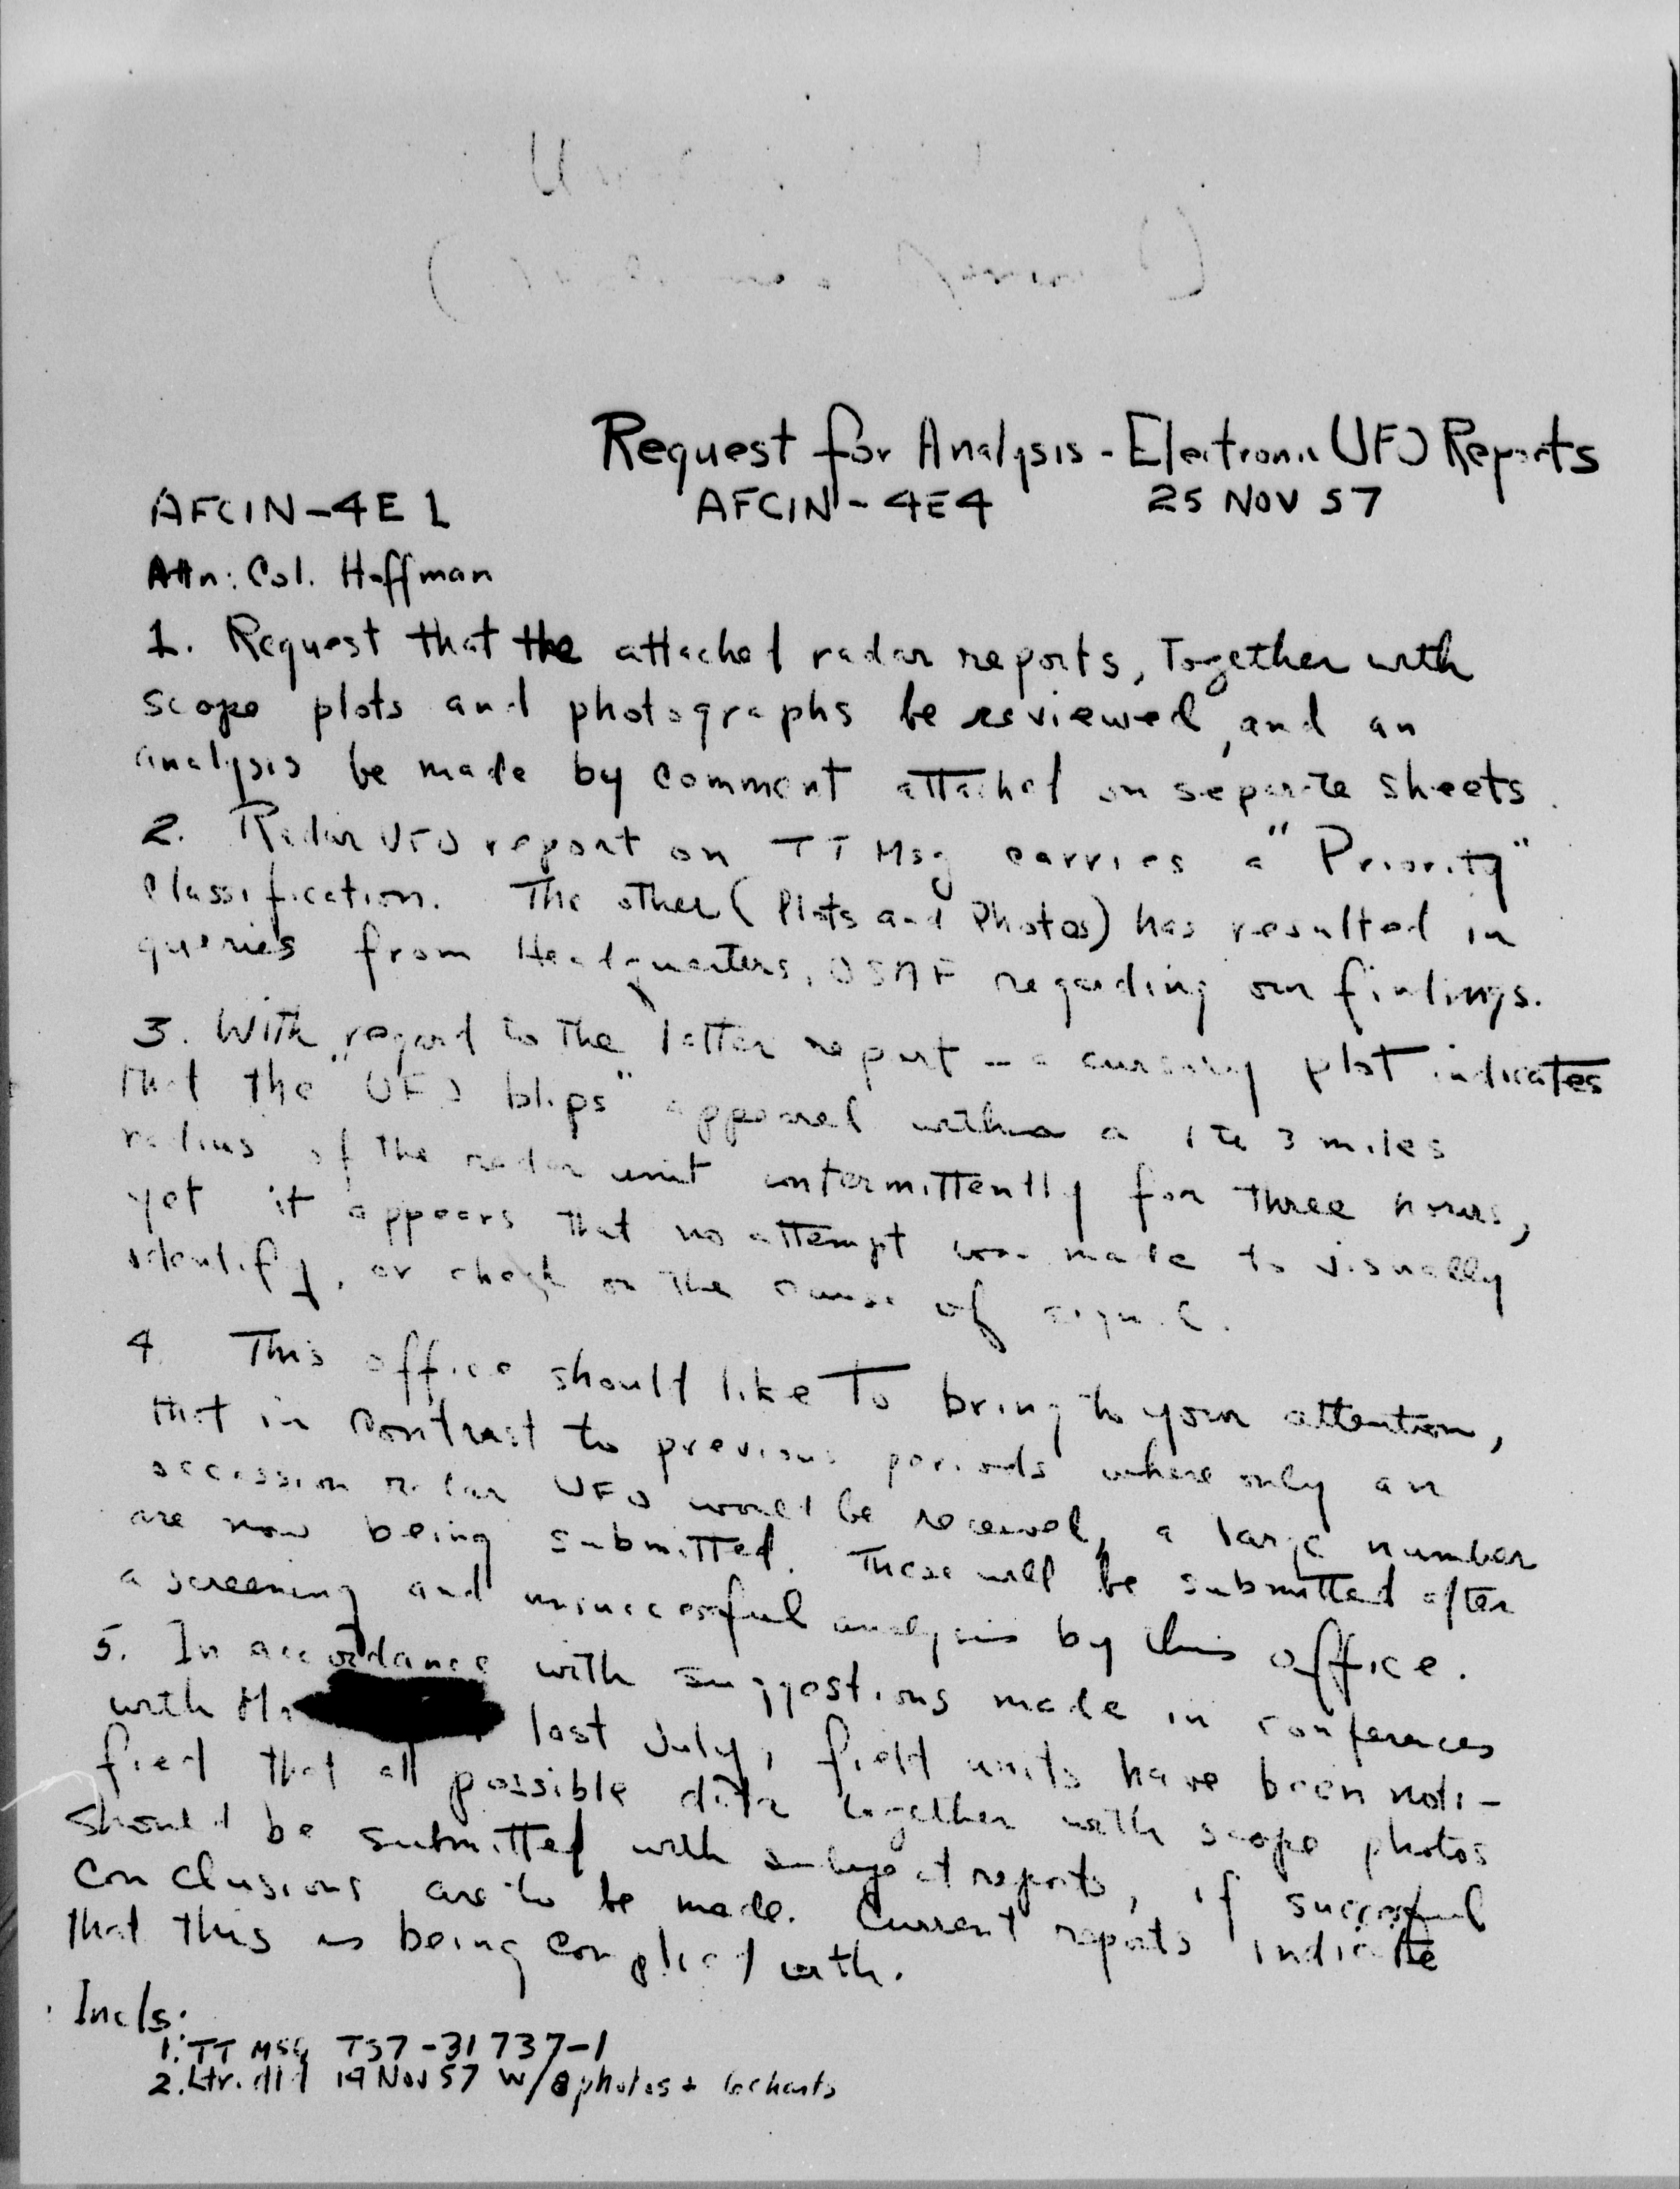 Request for Analysis - Electronic UFO Reports
AFCIN-4E1 AFCIN-4E4 25 NOV 57
Attn: Col. Hoffman
1. Request that the attached radar reports, Together with
scope plots and photographs be reviewed, and an
analysis be made by comment attached on separate sheets.
2. Radar UFO report on TT Msg carries a "Priority"
classification. The other (Plots and Photos) has resulted in
queries from Headquarters, USAF regarding our findings.
3. With regard to the latter report - a cursory plot indicates
that the "UFO blips" appeared within a 1 to 3 miles
radius of the radar unit intermittently for three hours,
yet it appears that no attempt was made to visually
identify, or check on the cause of signal.
4. This office should like To bring to your attention,
that in contrast to previous periods where only an
occassion radar UFO would be received, a large number
are now being submitted. These will be submitted after
a screening and unsuccessful analysis by this office.
5. In accordance with suggestions made in conferences
with Mr last July, field units have been noti-
fied that all possible data together with scope photos
should be submitted with subject reports, if successful
conclusions are to be made. Current reports indicate
that this is being complied with.
Incls:
1. TT MSG T57-31737-1
2. Ltr. dtd 19 Nov 57 W/8 photos + 6 charts